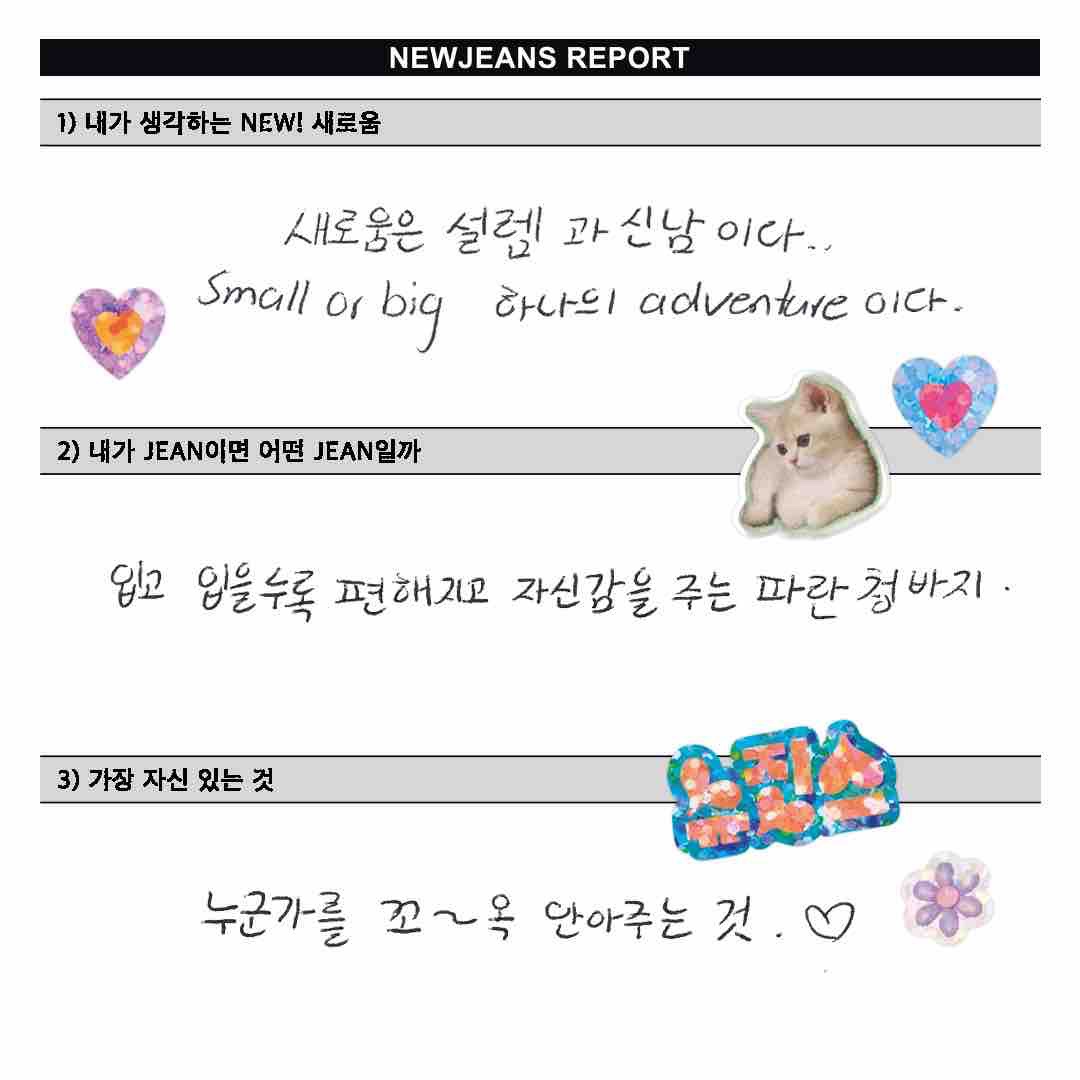 NEWJEANS REPORT
1) 내가 생각하는 NEW! 새로움
새로움은 설렘 과 신남 이다..
Small or big 하나의 adventure 이다.
2) 내가 JEAN이면 어떤 JEAN일까
입고 입을수록 편해지고 자신감을 주는 파란 청바지.
3) 가장 자신 있는 것
뉴진스
누군가를 꼬~옥 안아주는 것. ♡